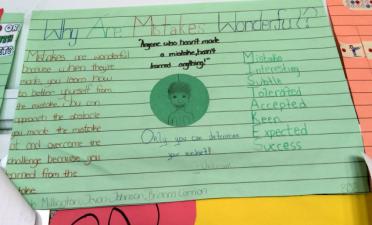 Why Are Mistakes Wonderful?
"Anyone who hasn't made
a mistake, hasn't
learned anything!"
Mistakes are wonderful
because when they're
made, you learn how
to better yourself from
the mistake. You can
approach the obstacle
you made the mistake
at and overcome the
challenge because you
learned from the
mistake.
Only you can determine
your mindset!
Mistake
Interesting
Subtle
Tolerated
Accepted
Keen
Expected
Success
Millington, Jevon Johnson, Brianna Cannon
802